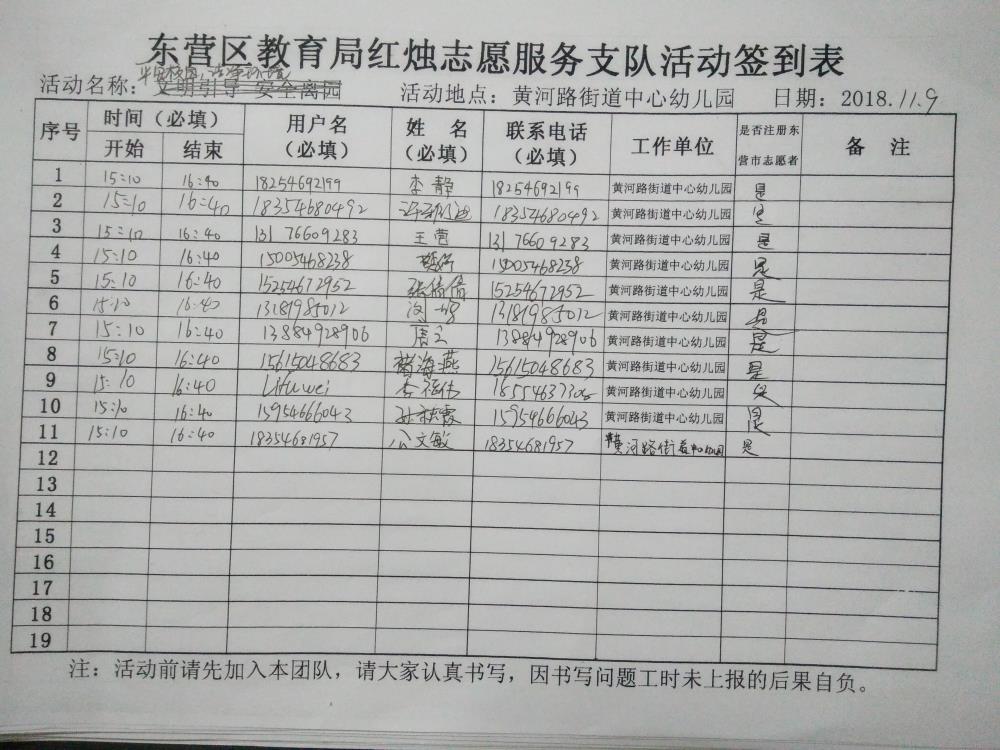 东营区教育局红烛志愿服务支队活动签到表
活动名称: 文明引导 安全离园 活动地点: 黄河路街道中心幼儿园 日期: 2018.11.9
序号 时间（必填） 用户名（必填） 姓 名（必填） 联系电话（必填） 工作单位 是否注册东营市志愿者 备 注
开始 结束
1 15:10 16:40 18254692199 李静 18254692199 黄河路街道中心幼儿园 是
2 15:10 16:40 18354680492 18354680492 黄河路街道中心幼儿园 是
3 15:10 16:40 13176609283 王营 13176609283 黄河路街道中心幼儿园 是
4 15:10 16:40 15005468238 15005468238 黄河路街道中心幼儿园 是
5 15:10 16:40 15254672952 张倩倩 15254672952 黄河路街道中心幼儿园 是
6 15:10 16:40 13181985012 13181985012 黄河路街道中心幼儿园 是
7 15:10 16:40 13884928906 13884928906 黄河路街道中心幼儿园 是
8 15:10 16:40 15615048683 海燕 15615048683 黄河路街道中心幼儿园 是
9 15:10 16:40 Lifuwei 黄河路街道中心幼儿园
10 15:10 16:40 15954666043 15954666043 黄河路街道中心幼儿园 是
11 15:10 16:40 18354681957 公文敏 18354681957 黄河路街道中心幼儿园 是
12
13
14
15
16
17
18
19
注: 活动前请先加入本团队，请大家认真书写，因书写问题工时未上报的后果自负。